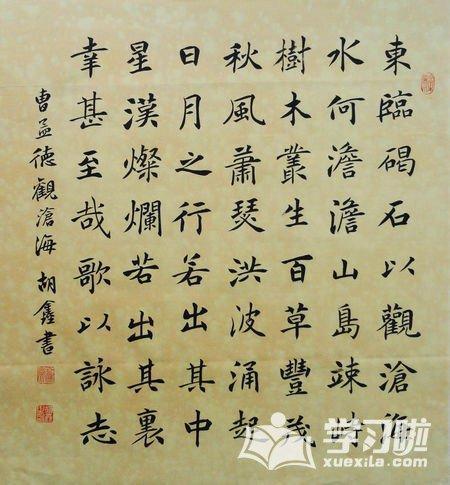 東臨碣石以觀滄海
水何澹澹山島竦峙
樹木叢生百草豐茂
秋風蕭瑟洪波涌起
日月之行若出其中
星漢燦爛若出其裏
幸甚至哉歌以詠志
曹孟德觀滄海 胡鑫書
学习啦
xuexila.com